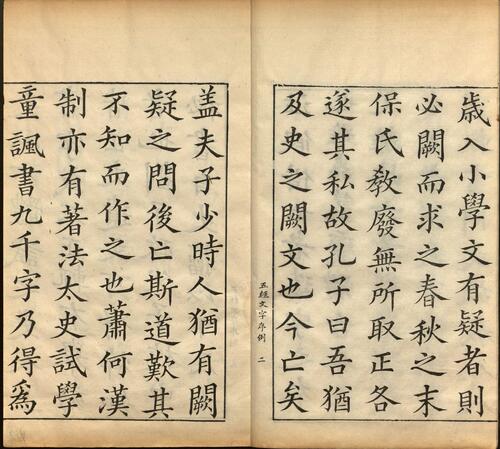 歲入小學文有疑者則
必闕而求之春秋之末
保氏敎廢無所取正各
遂其私故孔子曰吾猶
及史之闕文也今亡矣
五經文字序例 二
盖夫子少時人猶有闕
疑之問後亡斯道歎其
不知而作之也蕭何漢
制亦有著法太史試學
童諷書九千字乃得爲